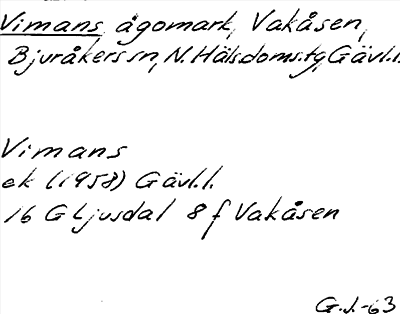 Vimans ågomark, Vakåsen,
Bjuråkers sn, N. Häls.doms.tg, Gävl.l.
Vimans
ek (1958) Gävl.l.
16 G Ljusdal 8 f Vakåsen
G.J.-63